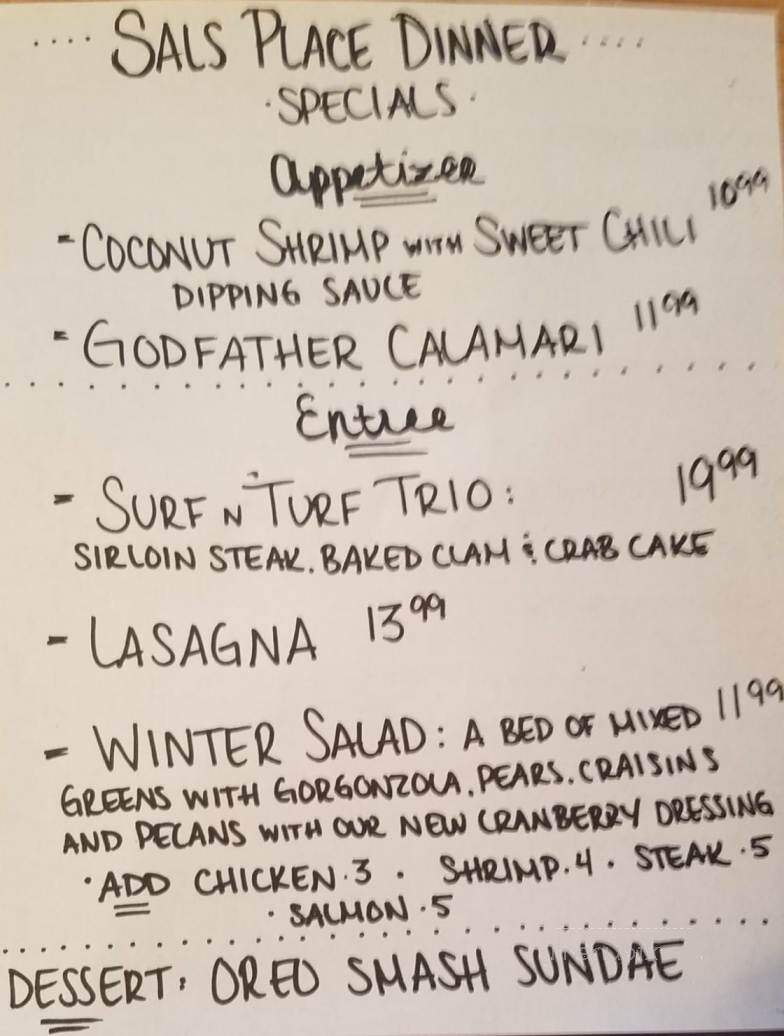 .... SALS PLACE DINNER ....
· SPECIALS ·
Appetizer
- COCONUT SHRIMP WITH SWEET CHILI 10⁹⁹
DIPPING SAUCE
- GODFATHER CALAMARI 11⁹⁹
Entree
- SURF N TURF TRIO: 19⁹⁹
SIRLOIN STEAK. BAKED CLAM & CRAB CAKE
- LASAGNA 13⁹⁹
- WINTER SALAD: A BED OF MIXED 11⁹⁹
GREENS WITH GORGONZOLA, PEARS, CRAISINS
AND PECANS WITH OUR NEW CRANBERRY DRESSING
· ADD CHICKEN · 3 · SHRIMP · 4 · STEAK · 5
· SALMON · 5
DESSERT: OREO SMASH SUNDAE